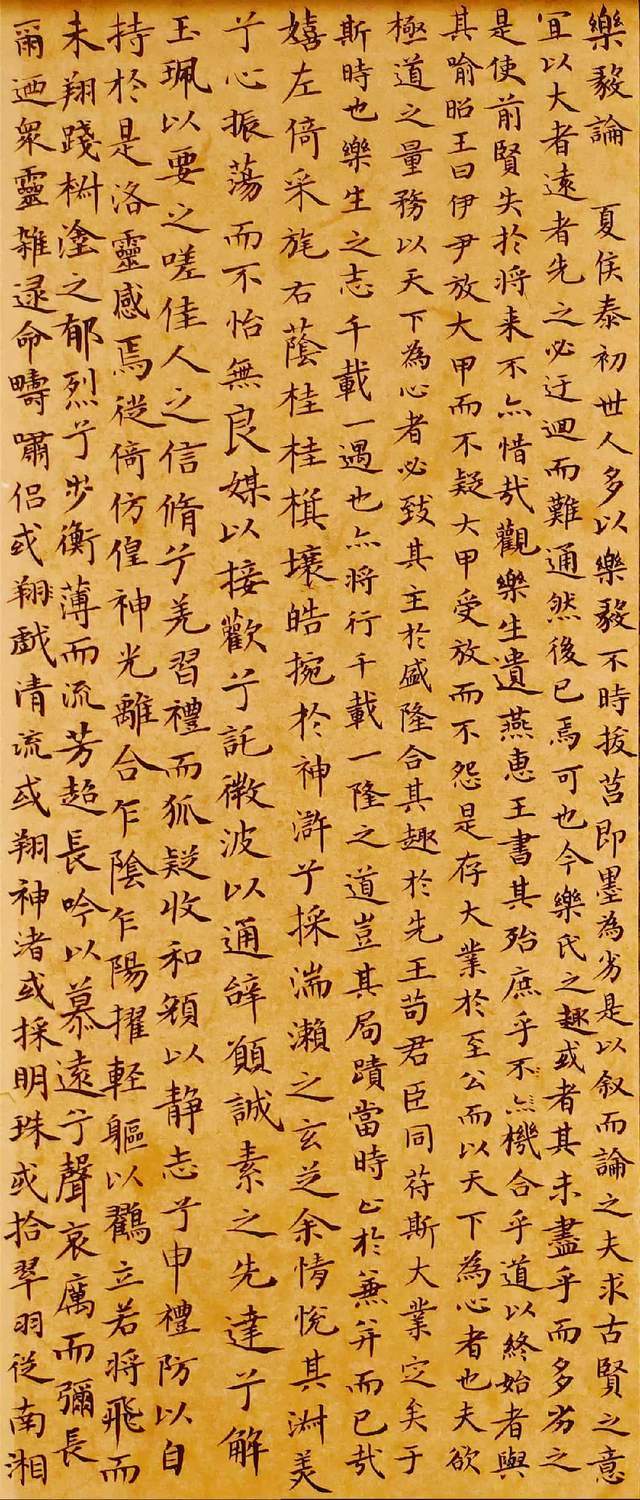 樂毅論　夏侯泰初世人多以樂毅不時拔莒即墨為劣是以叙而論之夫求古賢之意
宜以大者遠者先之必迂迴而難通然後已焉可也今樂氏之趣或者其未盡乎而多劣之
是使前賢失於将来不亦惜哉觀樂生遺燕惠王書其殆庶乎不亦機合乎道以終始者與
其喻昭王曰伊尹放大甲而不疑大甲受放而不怨是存大業於至公而以天下為心者也夫欲
極道之量務以天下為心者必致其主於盛隆合其趣於先王苟君臣同苻斯大業定矣于
斯時也樂生之志千載一遇也亦将行千載一隆之道豈其局蹟當時止於兼并而已哉
嬉左倚采旄右蔭桂桂棋壤皓捥於神滸兮採湍瀨之玄芝余情悅其淋美
兮心振蕩而不怡無良媒以接歡兮託微波以通辝願誠素之先達兮解
玉珮以要之嗟佳人之信脩兮羌習禮而狐疑收和顏以静志兮申禮防以自
持於是洛靈感焉從倚仿偟神光離合乍陰乍陽擢軽軀以鸖立若将飛而
未翔踐椒塗之郁烈兮步衡薄而流芳超長吟以慕遠兮聲哀厲而彌長
爾迺衆靈雑逯命疇嘯侣或翔戯清流或翔神渚或採明珠或拾翠羽從南湘